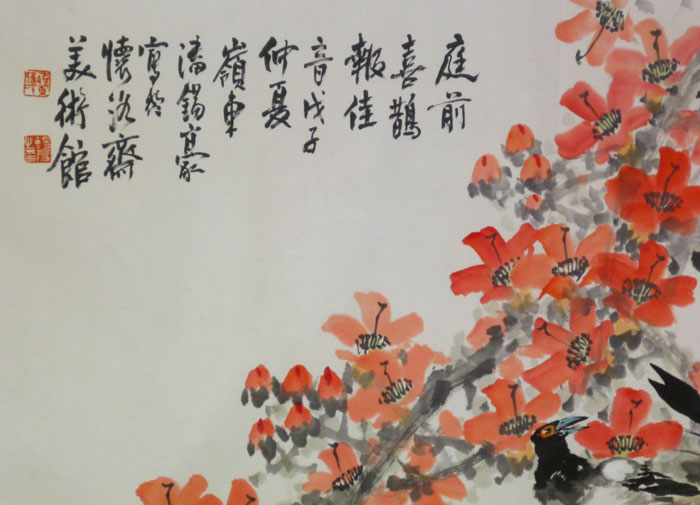 庭前
喜鵲
報佳
音戊子
仲夏
嶺東
潘錫豪
寫於
懷汝齋
美術館